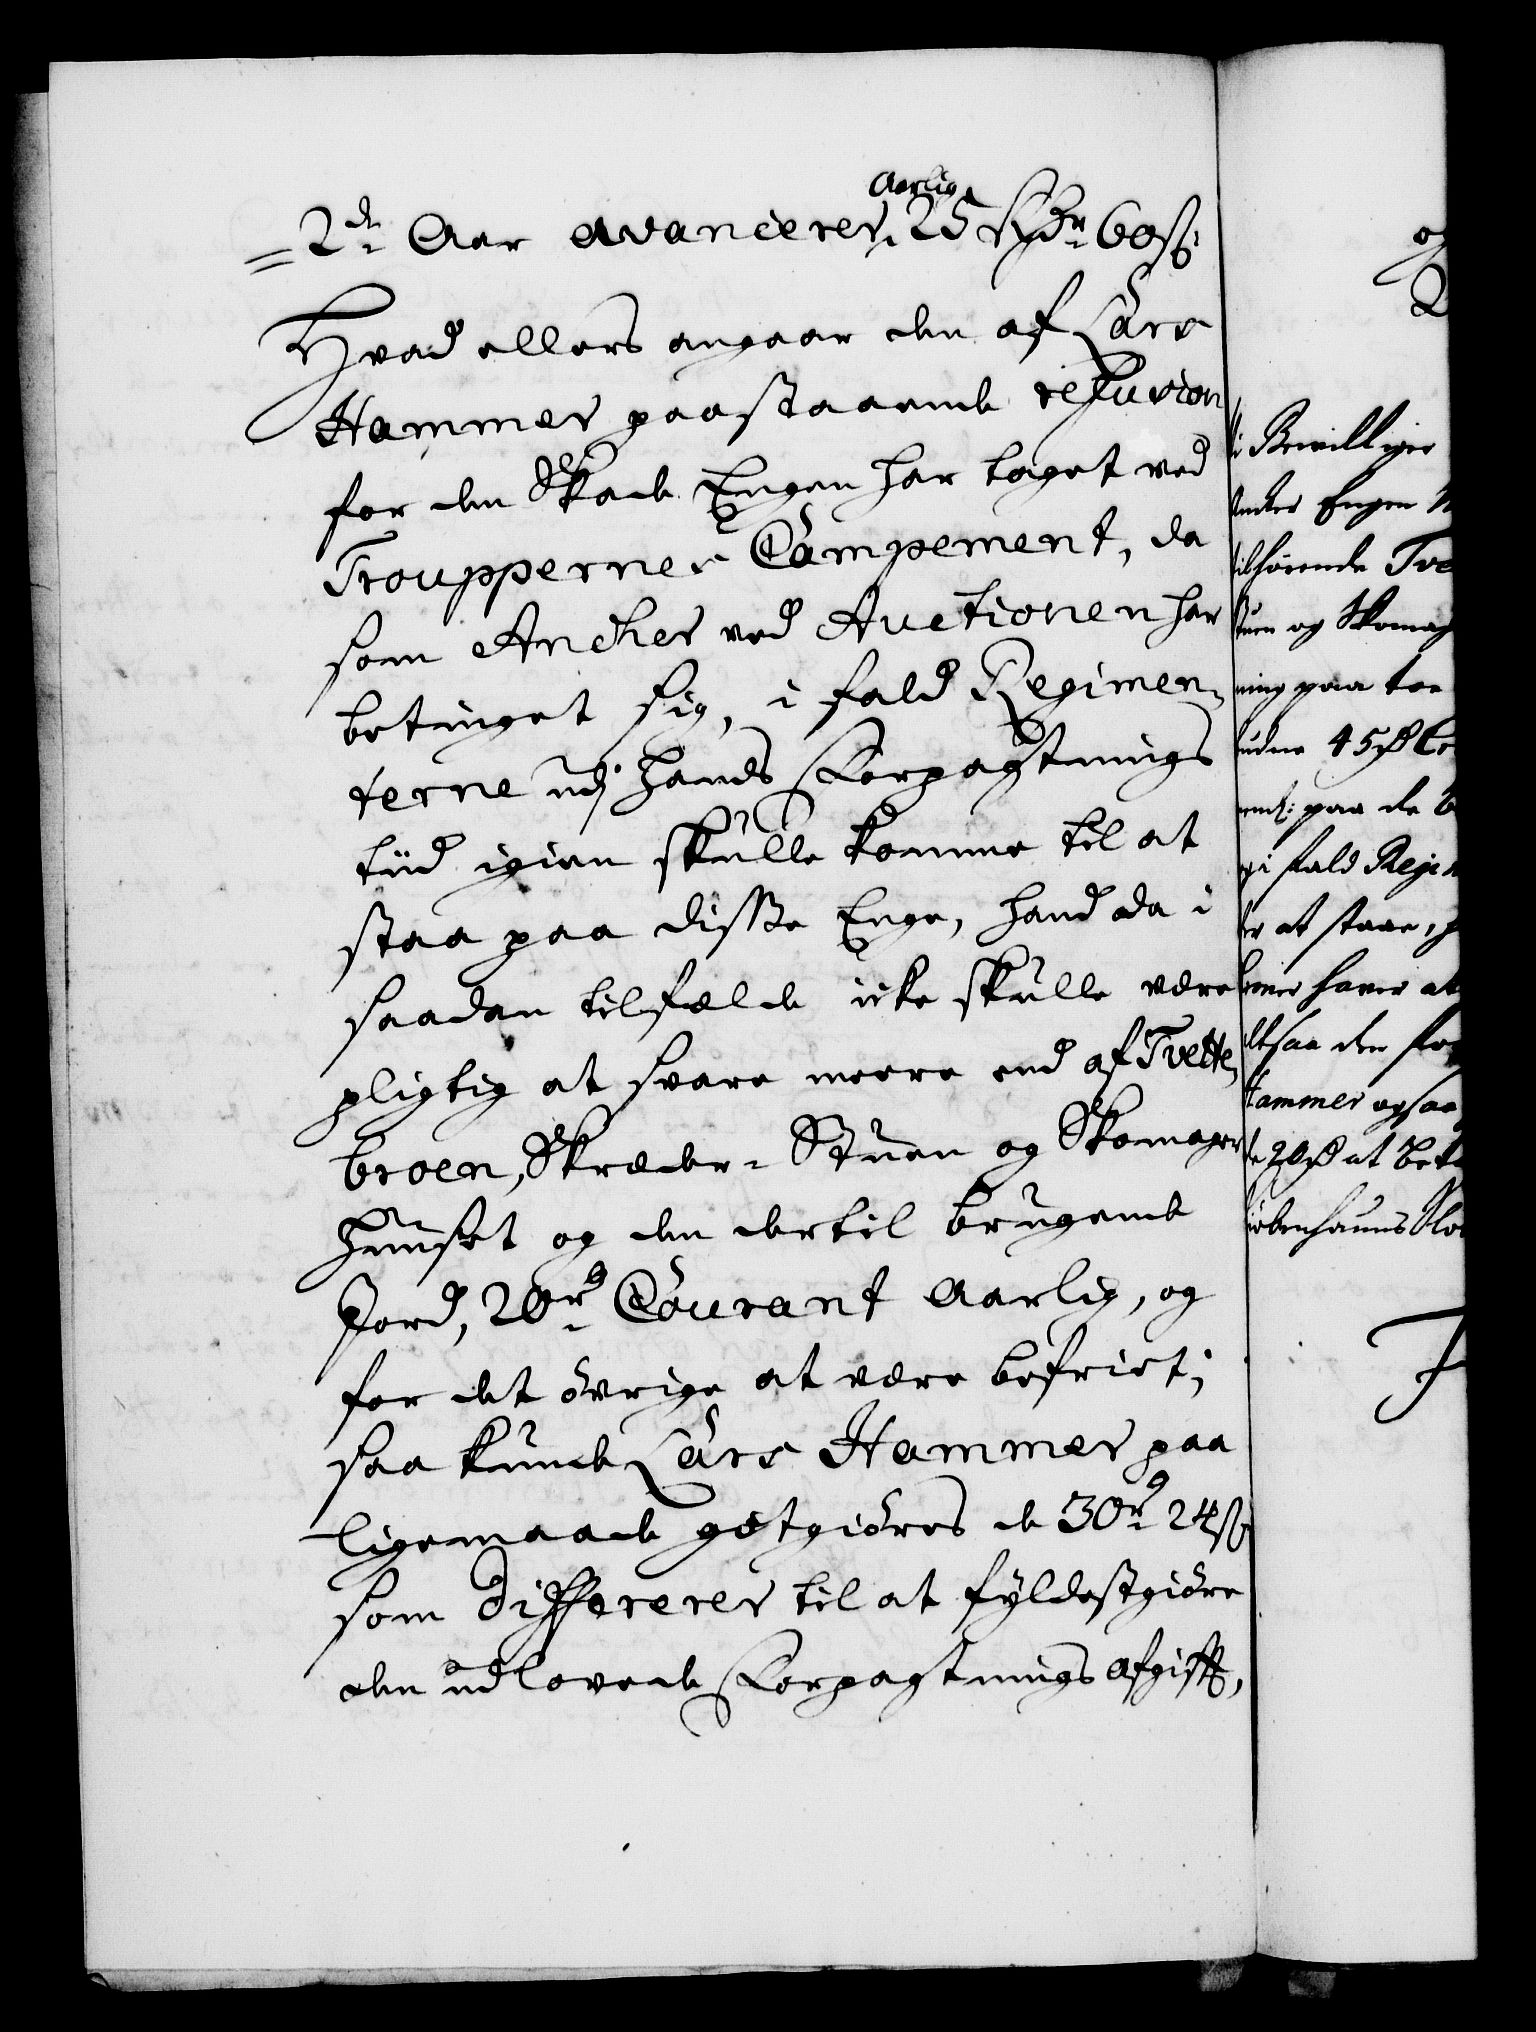 Aarlig
= 2de Aar avancerer, 25 Rdr 60 ß:
Hvad ellers angaar den af Lars
Hammer paastaaende refusion
for den Skade Engen har taget ved
Trouppernes Campement, da
som Ancher ved Auctionen har
betinget sig, i fald Regimen-
terne udj hands Forpagtnings
tiid igien skulle komme til at
staa paa disse Enge, hand da i
saadan tilfælde icke skulle være
pligtig at svare meere end af Tvette,
broen, Skræder- Stuen og Skomager
Huuset og den dertil brugende
Jord, 20rd Courant Aarlig, og
for det övrige at være befriet;
saa kunde Lars Hammer paa
ligemaade gotgiöres de 30rd 24 ß
som differerer til at fyldestgiöre
den udlovede Forpagtnings Afgifft,
og
i Bevilliger
Engen
tilhörende Tve
Stuen og Skomag
ning paa toe
budne 45 rd Co
paa de
i fald Regim
at staae,
haver at
altsaa den for
Hammer ogsaa
20 rd at beta
Kiöbenhauns Slot
F